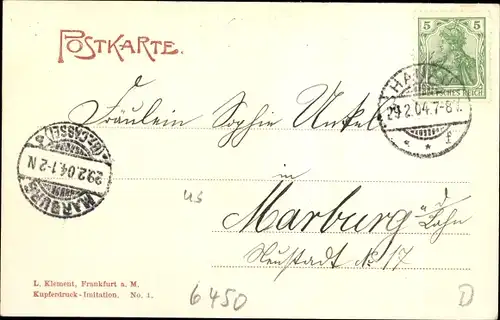 POSTKARTE.
5 5
DEUTSCHES REICH
HANAU
29.2.04.7-8V.
* * f
Fräulein Sophie Unkel
in
Marburg a/d Lahn
Neustadt No 17
MARBURG
29.2.04.1-2N
*(BZ.CASSEL)*
us
L. Klement, Frankfurt a. M.
Kupferdruck-Imitation. No. 1.
6450
D